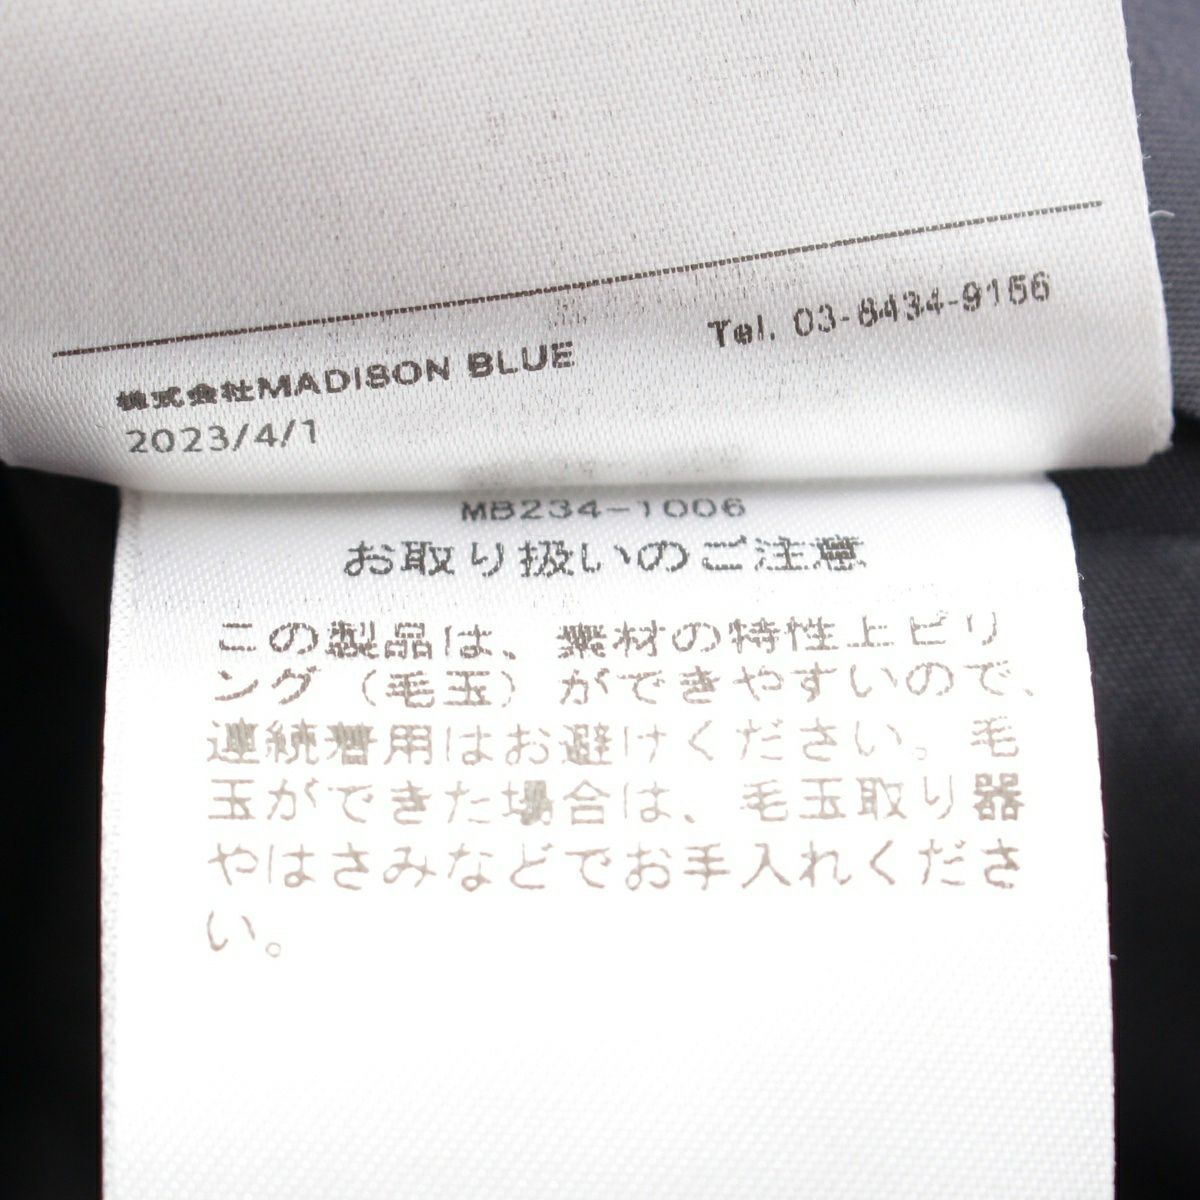 Tel. 03-6434-9156
株式会社MADISON BLUE
2023/4/1
MB234-1006
お取り扱いのご注意
この製品は、素材の特性上ピリ
ング（毛玉）ができやすいので、
連続着用はお避けください。毛
玉ができた場合は、毛玉取り器
やはさみなどでお手入れくださ
い。